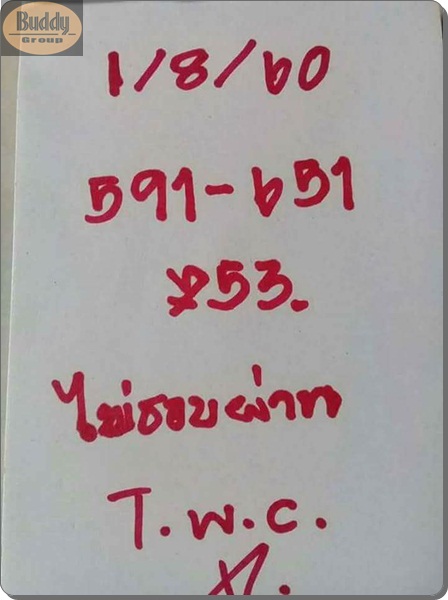 Buddy
Group
1/8/60
591-651
253.
ไม่ชอบผ่าน
T.W.C.